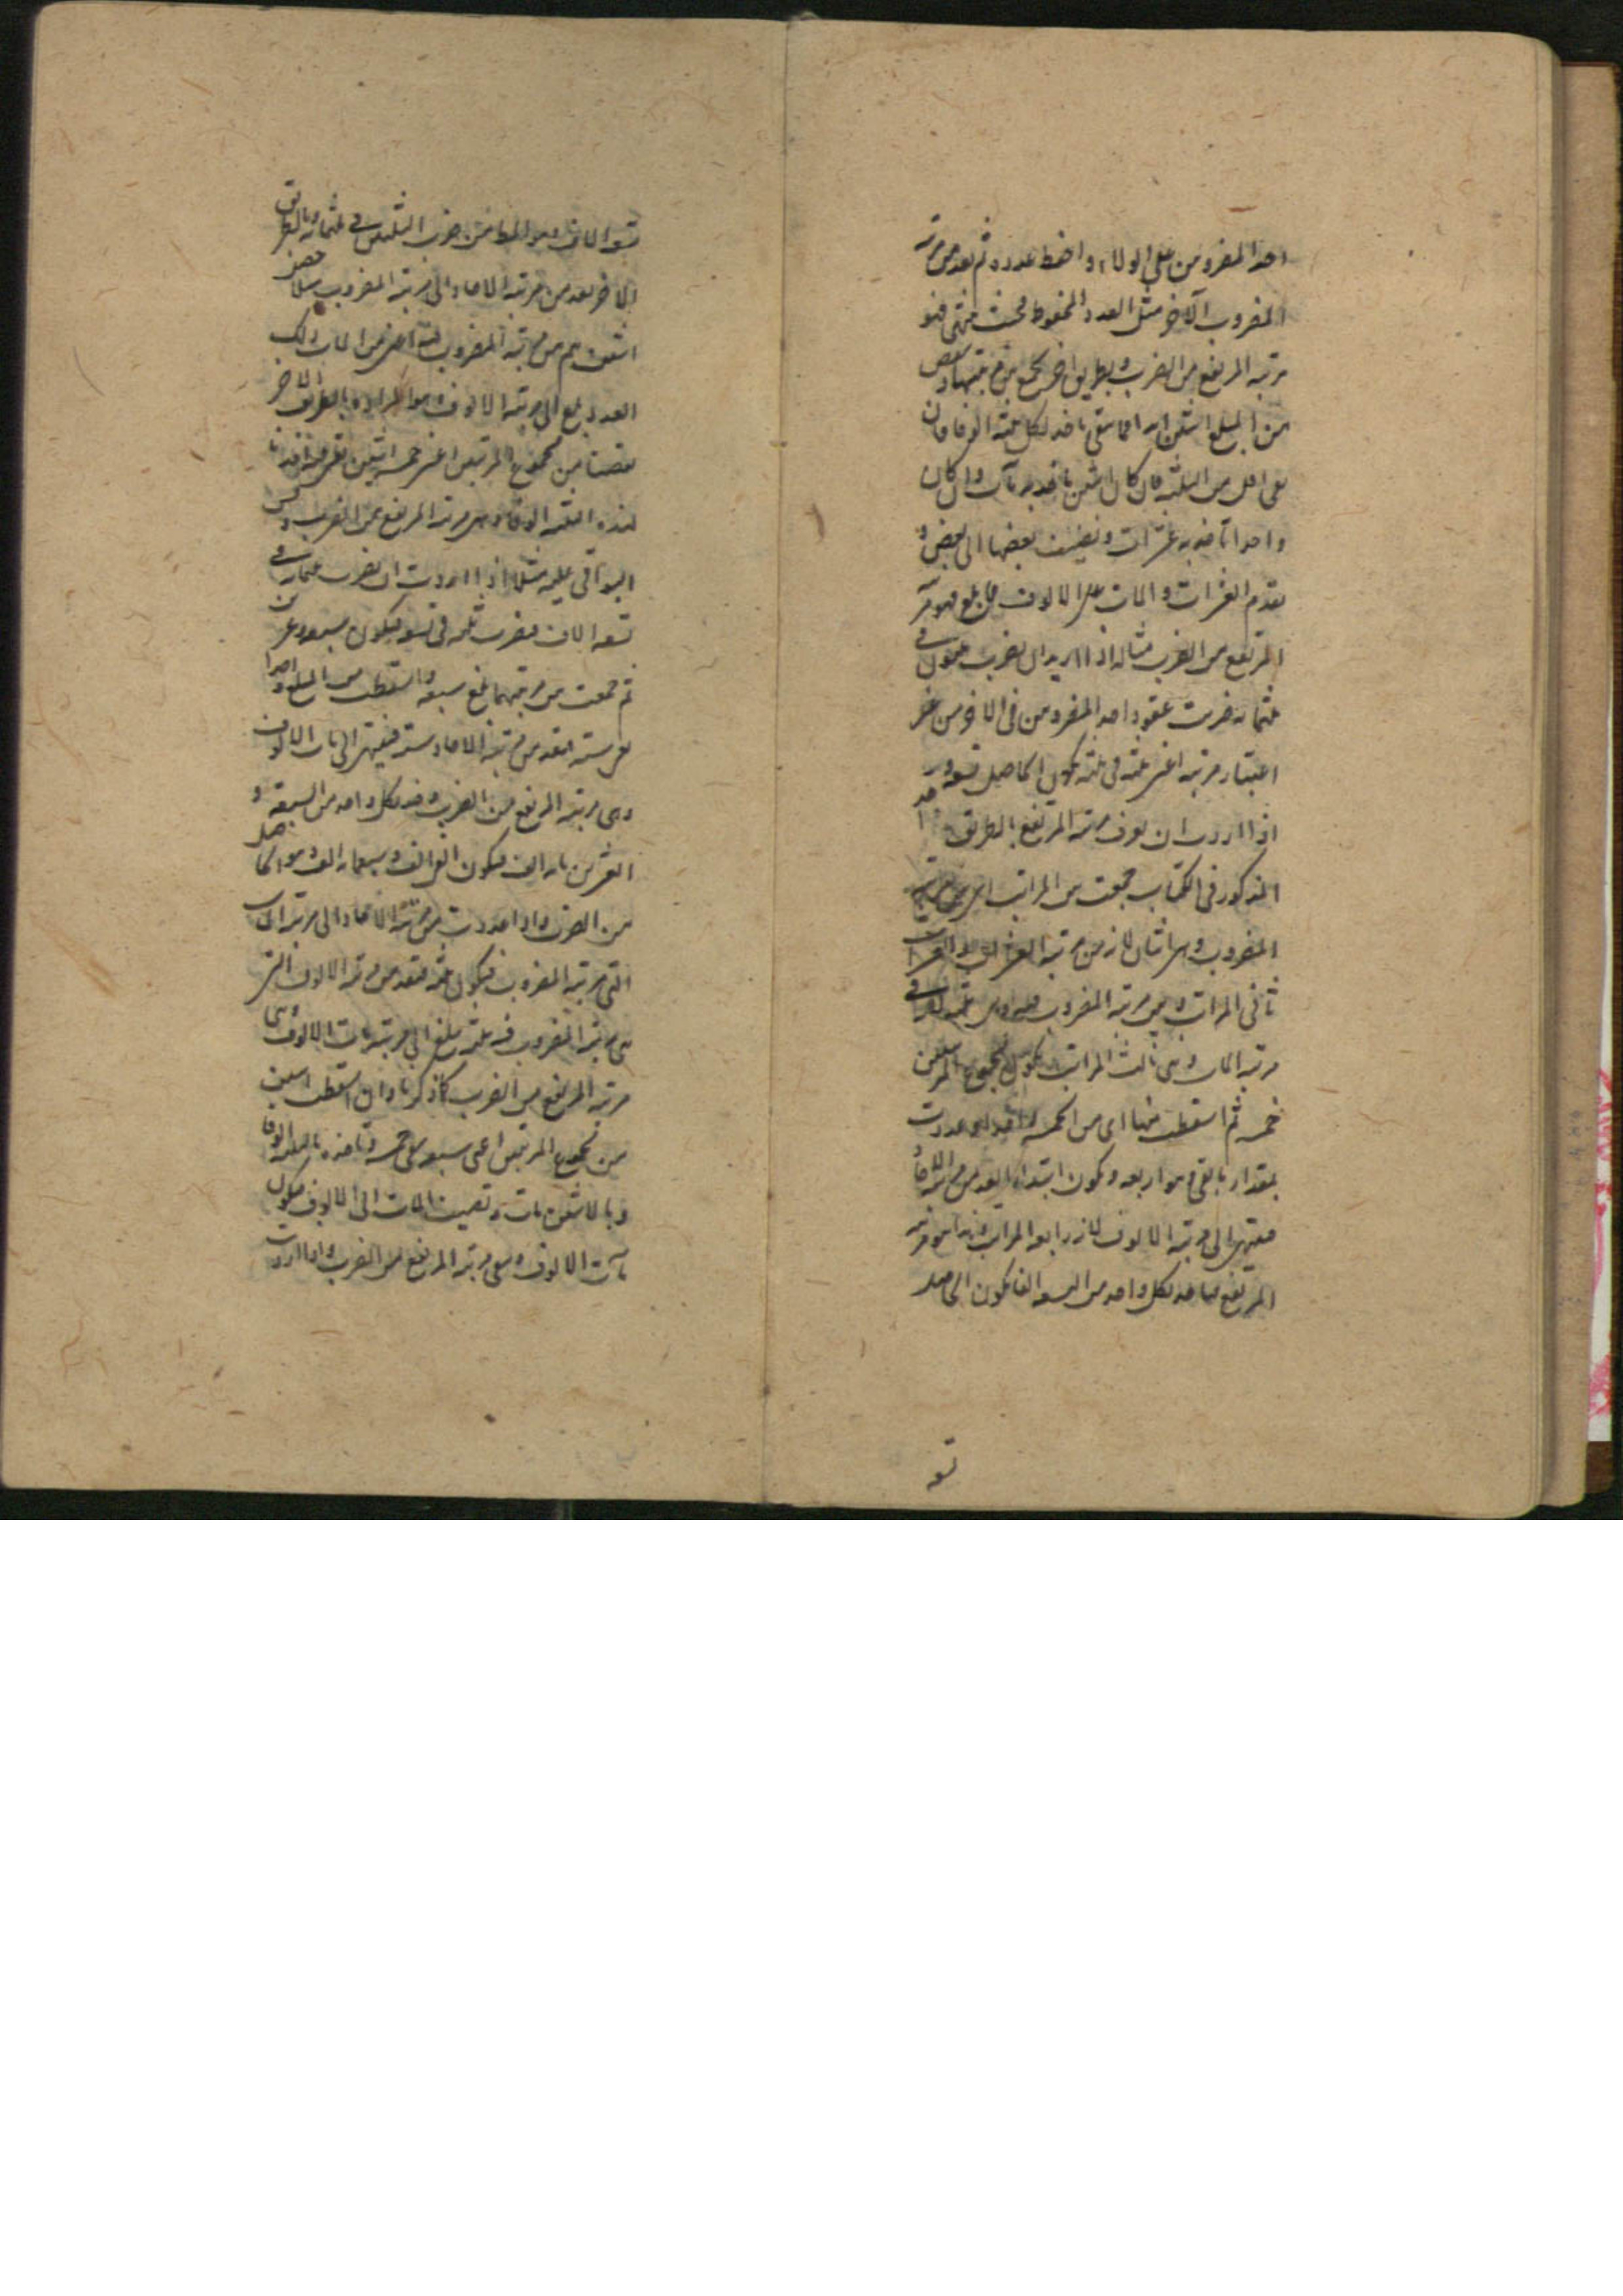 احد المضروبين على الولاء واحفظ عدده ثم تعد من مرتبة
المضروب الآخر مثل العدد المحفوظ فحيث ينتهى فهو
مرتبة المرتفع من الضرب وبطريق اخر تجمع بين مرتبتيهما وتنقص
من المبلغ اثنين ابدا فما بقى تاخذ لكل ثلثة الوفا فان
بقى اقل من الثلثة فان كان اثنين تاخذ به مآت وان كان
واحدا تاخذ به عشرات وتضيف بعضها الى بعض و
تقدم العشرات والمات على الالوف فما بلغ فهو مرتبة
المرتفع من الضرب مثاله اذا اريد ان نضرب ثلثون فى
ثلثمائة ضربت عقود احد المضروبين فى الاخر من غير
اعتبار مرتبة اعنى ثلثة فى ثلثة يكون الحاصل تسعة
اذا اردت ان تعرف مرتبة المرتفع بالطريق
المذكور فى الكتاب جمعت من المراتب اى من مرتبة
المضروب وهى اثنان لانه من مرتبة العشرات والعشرات
ثانى المراتب ومن مرتبة المضروب فيه وهى ثلثة لانه فى
مرتبة المات وهى ثالث المراتب يكون مجموع المرتبتين
خمسة ثم اسقطت منها اى من الخمسة واحدا عددت
بمقدار ما بقى هو اربعة ويكون ابتداء العد من مرتبة الاحاد
فينتهى الى مرتبة الالوف لانه رابعة المراتب وهذا هو مرتبة
المرتفع فياخذ لكل واحد من التسعة الفا يكون الحاصل
تسعة
تسعة الاف وهو المطلوب من ضرب الثلثين فى ثلثمائة وبالطريق
الاخر تعد من مرتبة الاحاد الى مرتبة المضروب مثلا
اثنين ثم من مرتبة المضروب فيه اعنى من المات ذلك
العدد بلغ الى مرتبة الالوف وهو المراد وبالطريق الاخر
نقصنا من مجموع المرتبتين اعنى خمسة اثنين بقى ثلثة اخذنا
لهذه الثلثة الوفا وهى مرتبة المرتفع من الضرب وقس
البواقى عليه مثلا اذا اردت ان تضرب ثلثمائة فى
تسعة الاف فضرب ثلثة فى تسعة فيكون سبعة وعشرين
ثم جمعت من مرتبتيهما بلغ سبعة واسقطت من المبلغ واحدا
بقى ستة فتعد من مرتبة الاحاد ستة فينتهى الى مات الالوف
وهى مرتبة المرتفع من الضرب وخذ لكل واحد من السبعة و
العشرين مائة الف فيكون الفى الف وسبعمائة الف وهو الحاصل
من الضرب واذا عددت من مرتبة الاحاد الى مرتبة المات
التى مرتبة المضروب فيكون ثلثة فتعد من مرتبة الالوف التى
هى مرتبة المضروب فيه ثلثة يبلغ الى مرتبة مات الالوف وهى
مرتبة المرتفع من الضرب كما ذكرنا وان اسقطت اثنين
من مجموع المرتبتين اعنى سبعة بقى خمسة وتاخذ بالثلثة الوفا
وبالاثنين مات وتضيف المات الى الالوف فيكون
مآت الالوف وهى مرتبة المرتفع من الضرب واذا اردت